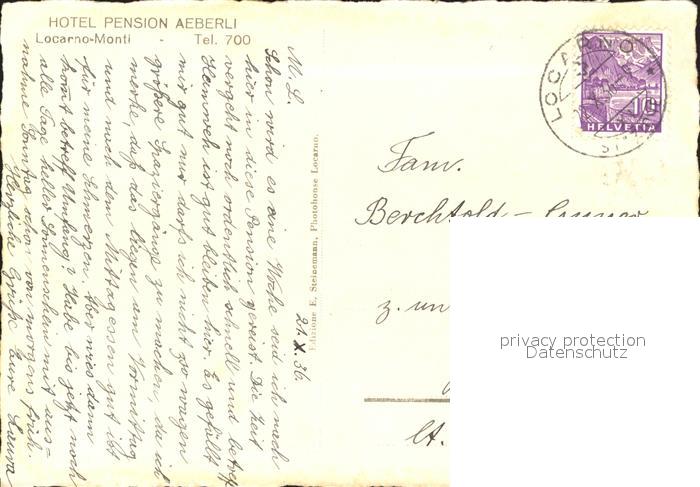 HOTEL PENSION AEBERLI
Locarno-Monti - Tel. 700
21. X. 36.
M. L.
Schon wird es eine Woche seid ich nach
hier in diese Pension gereist. Die Zeit
vergeht noch ordentlich schnell und betreff
Heimweh ist gut bleiben hier. Es gefällt
mir gut nur darf ich nicht zo wagen
größere Spaziergänge zu machen, da ich
merke, daß das liegen am Vormittag
und nach dem Mittagessen gut ist
für meine Schmerzen. Aber wies dann
kommt betreff Umfang? Habe bis jetzt noch
alle Tage heller Sonnenschein mit aus-
nahme Sonntag schon von morgens früh.
Herzliche Grüße Eure
Edizione E. Steinemann, Photohouse Locarno.
LOCARNO
10
HELVETIA
Fam.
Berchtold -
z. un
Ct.
privacy protection
Datenschutz